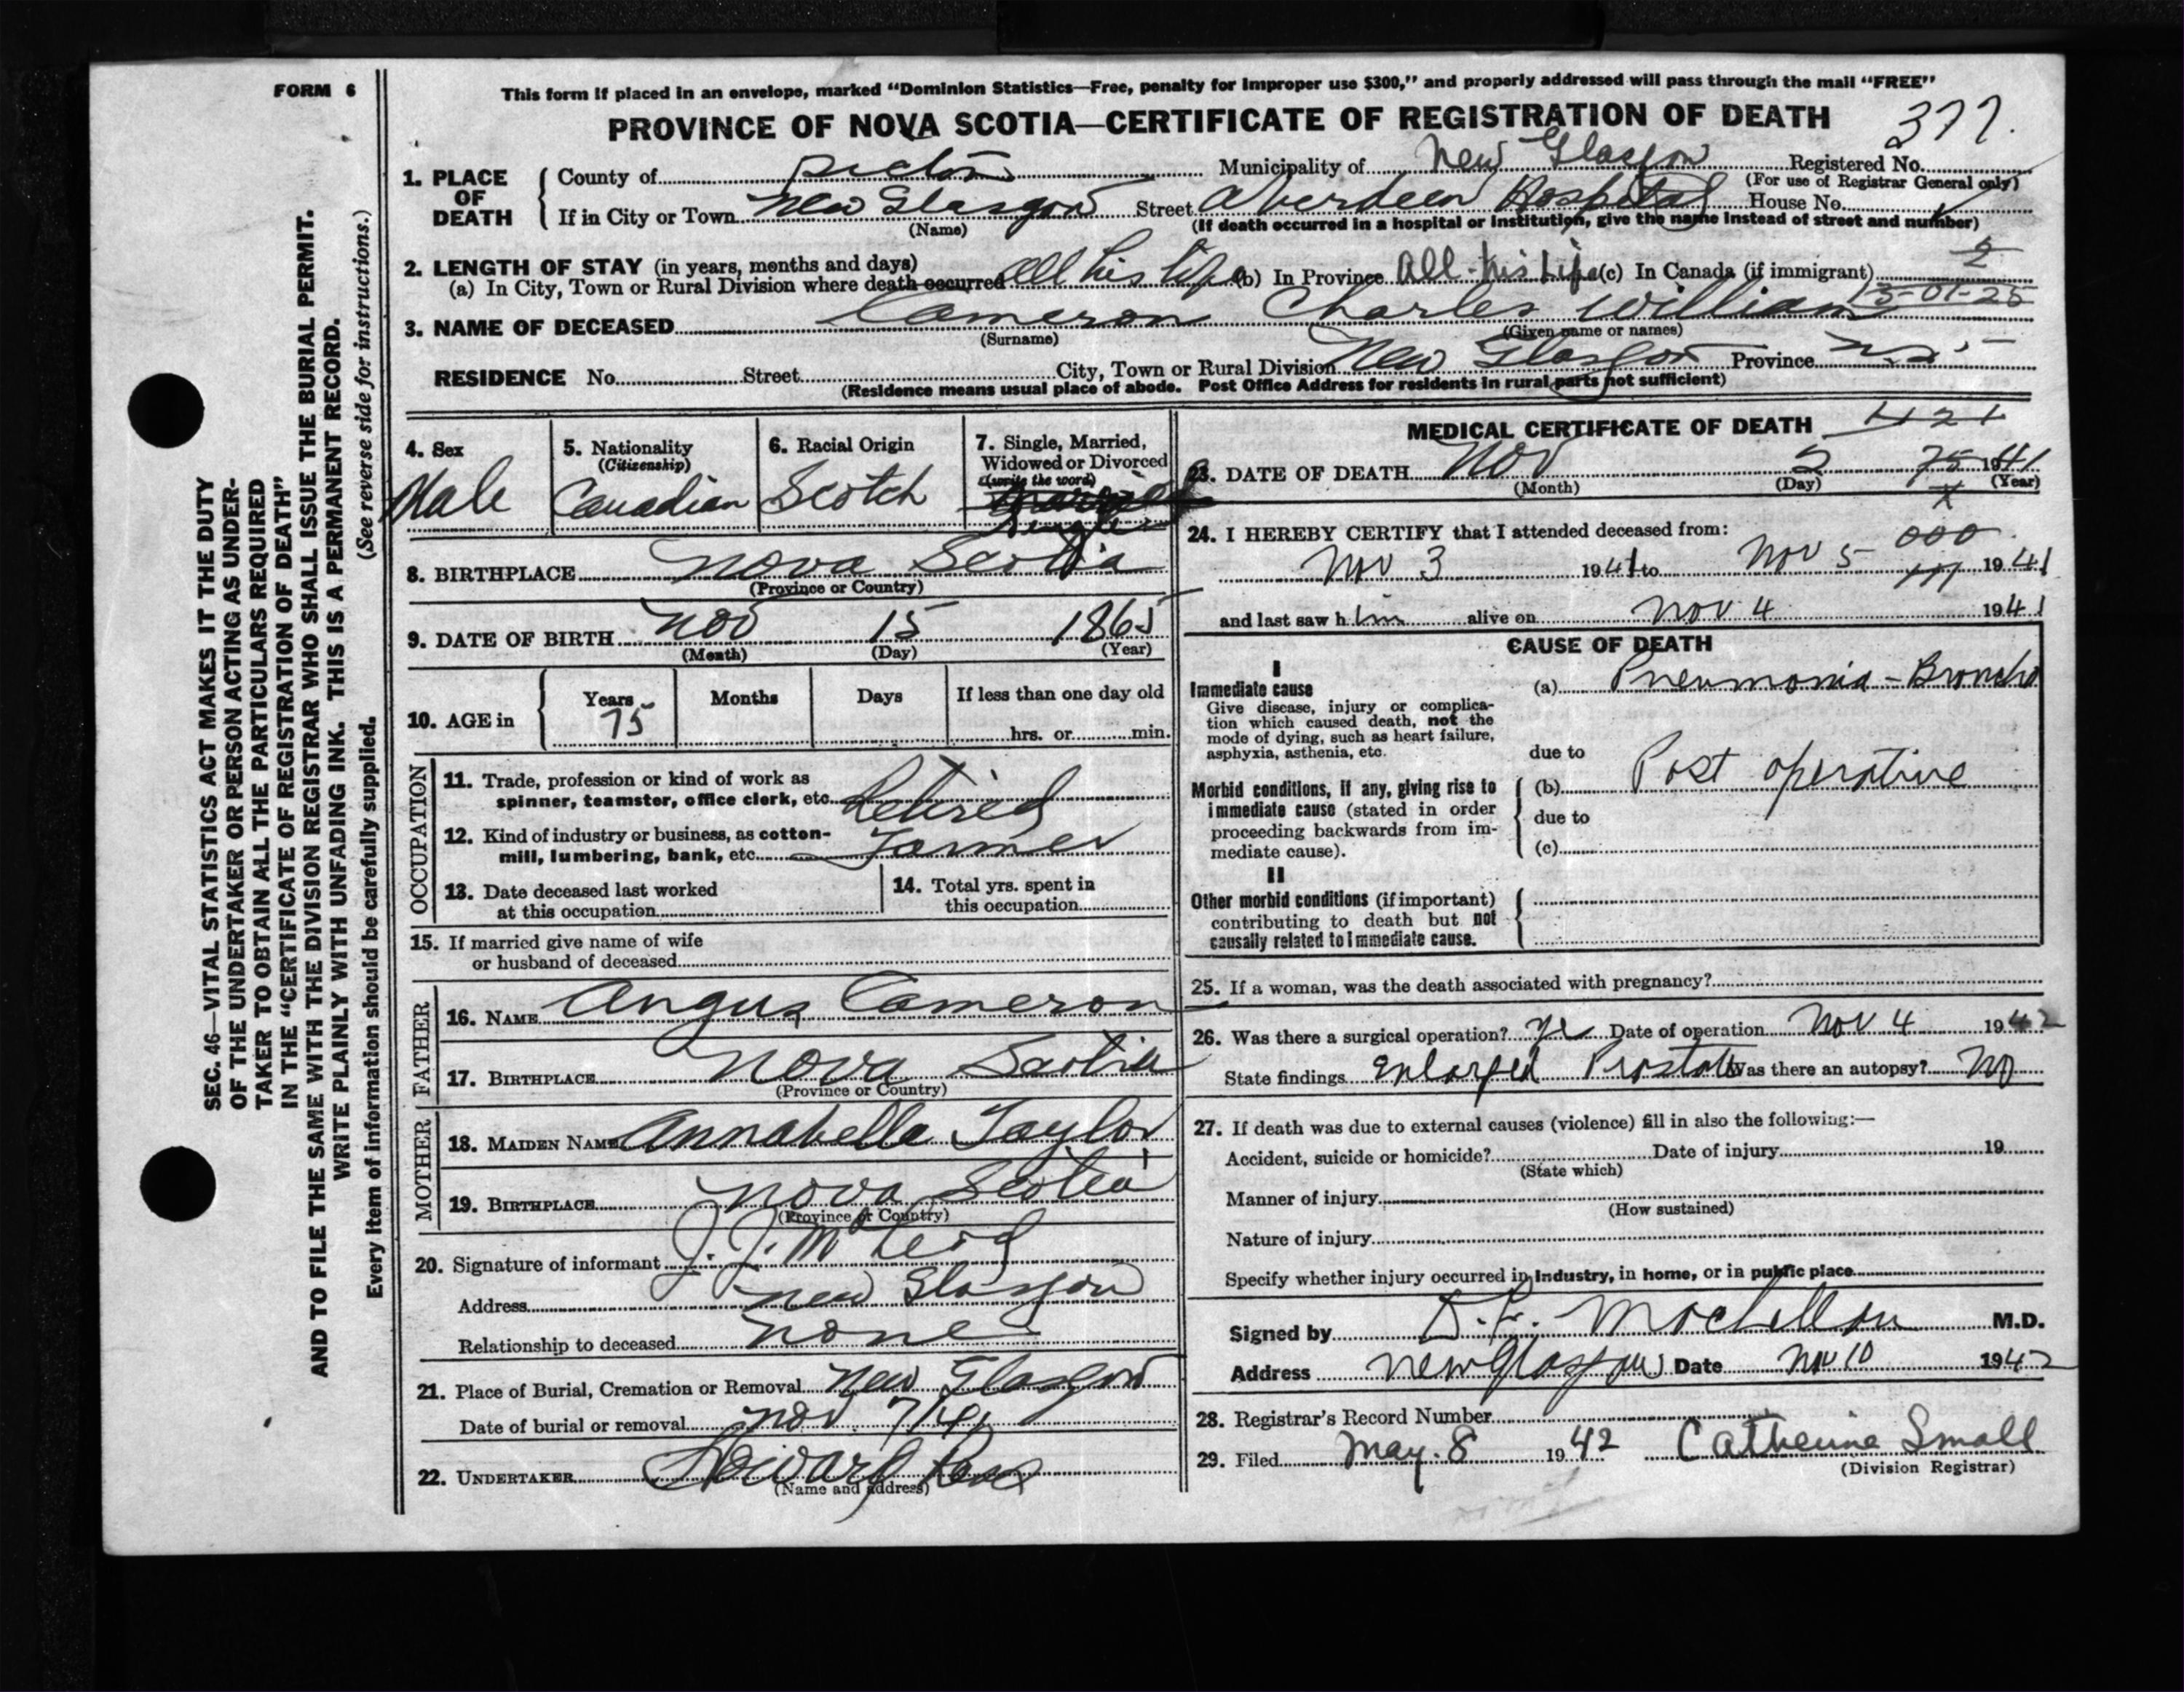 FORM 6
This form if placed in an envelope, marked "Dominion Statistics—Free, penalty for improper use $300," and properly addressed will pass through the mail "FREE"
PROVINCE OF NOVA SCOTIA—CERTIFICATE OF REGISTRATION OF DEATH
377.
1. PLACE OF DEATH
County of Pictou Municipality of New Glasgow Registered No.
(For use of Registrar General only)
If in City or Town New Glasgow Street Aberdeen Hospital House No.
(Name) (If death occurred in a hospital or institution, give the name instead of street and number)
2. LENGTH OF STAY (in years, months and days)
(a) In City, Town or Rural Division where death occurred all his life (b) In Province All his life (c) In Canada (if immigrant)
2
13-01-25
3. NAME OF DECEASED Cameron Charles William
(Surname) (Given name or names)
RESIDENCE No. Street City, Town or Rural Division New Glasgow Province N.S.
(Residence means usual place of abode. Post Office Address for residents in rural parts not sufficient)
4. Sex
Male
5. Nationality
(Citizenship)
Canadian
6. Racial Origin
Scotch
7. Single, Married,
Widowed or Divorced
(write the word)
Single
8. BIRTHPLACE Nova Scotia
(Province or Country)
9. DATE OF BIRTH Nov 15 1865
(Month) (Day) (Year)
10. AGE in
Years Months Days If less than one day old
75
hrs. or min.
OCCUPATION
11. Trade, profession or kind of work as
spinner, teamster, office clerk, etc. Retired
12. Kind of industry or business, as cotton-
mill, lumbering, bank, etc. Farmer
13. Date deceased last worked
at this occupation
14. Total yrs. spent in
this occupation
15. If married give name of wife
or husband of deceased
FATHER
16. NAME Angus Cameron
17. BIRTHPLACE Nova Scotia
(Province or Country)
MOTHER
18. MAIDEN NAME Annabella Taylor
19. BIRTHPLACE Nova Scotia
(Province or Country)
20. Signature of informant J. J. McLeod
Address New Glasgow
Relationship to deceased none
21. Place of Burial, Cremation or Removal New Glasgow
Date of burial or removal Nov 7/41
22. UNDERTAKER Howard
(Name and address)
MEDICAL CERTIFICATE OF DEATH
23. DATE OF DEATH Nov 5 75 1941
(Month) (Day) (Year)
24. I HEREBY CERTIFY that I attended deceased from:
000
Nov 3 1941 to Nov 5 1941
and last saw h im alive on Nov 4 1941
CAUSE OF DEATH
I
Immediate cause
Give disease, injury or complica-
tion which caused death, not the
mode of dying, such as heart failure,
asphyxia, asthenia, etc.
(a) Pneumonia - Broncho
due to
Morbid conditions, if any, giving rise to
immediate cause (stated in order
proceeding backwards from im-
mediate cause).
(b) Post operative
due to
(c)
II
Other morbid conditions (if important)
contributing to death but not
causally related to immediate cause.
25. If a woman, was the death associated with pregnancy?
26. Was there a surgical operation? Yes Date of operation Nov 4 1942
State findings Enlarged Prostate Was there an autopsy? No
27. If death was due to external causes (violence) fill in also the following:—
Accident, suicide or homicide? Date of injury 19
(State which)
Manner of injury
(How sustained)
Nature of injury
Specify whether injury occurred in industry, in home, or in public place
Signed by M.D.
Address New Glasgow Date Nov 10 1942
28. Registrar's Record Number
29. Filed May. 8 1942 Catherine Small
(Division Registrar)
SEC. 46—VITAL STATISTICS ACT MAKES IT THE DUTY
OF THE UNDERTAKER OR PERSON ACTING AS UNDER-
TAKER TO OBTAIN ALL THE PARTICULARS REQUIRED
IN THE "CERTIFICATE OF REGISTRATION OF DEATH"
AND TO FILE THE SAME WITH THE DIVISION REGISTRAR WHO SHALL ISSUE THE BURIAL PERMIT.
WRITE PLAINLY WITH UNFADING INK. THIS IS A PERMANENT RECORD.
(See reverse side for instructions.)
Every item of information should be carefully supplied.